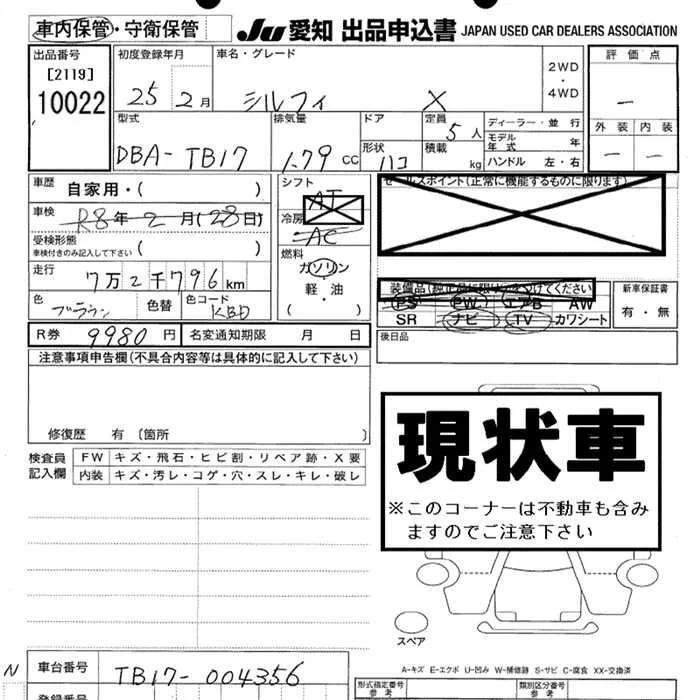 車内保管・守衛保管 JU 愛知 出品申込書 JAPAN USED CAR DEALERS ASSOCIATION
出品番号 初度登録年月 車名・グレード 2WD・4WD 評価点
[2119] 10022 25 2月 シルフィ X －
型式 排気量 ドア 定員 5人 ディーラー・並行 外装 内装
DBA-TB17 1.79cc 形状 ハコ 積載 kg モデル年式 年 － －
ハンドル 左・右
車歴 自家用・( ) シフト AT セールスポイント(正常に機能するものに限ります)
車検 R8年2月(28日) 冷房 AC
受検形態 車検付きのみ記入して下さい ( ) 燃料
走行 7万2千796km ガソリン・軽・油 ( ) 装備品(純正品に限り○をつけてください) 新車保証書
色 ブラウン 色替 色コード KBD PS PW エアB AW 有・無
SR ナビ TV カワシート
R券 9980円 名変通知期限 月 日 後日品
注意事項申告欄(不具合内容等は具体的に記入して下さい)
修復歴 有 〔箇所
現状車
※このコーナーは不動車も含み
ますのでご注意下さい
検査員記入欄 FW キズ・飛石・ヒビ割・リペア跡・X要
内装 キズ・汚レ・コゲ・穴・スレ・キレ・破レ
スペア
A-キズ E-エクボ U-凹み W-補修跡 S-サビ C-腐食 XX-交換済
N 車台番号 TB17-004356 形式指定番号 参考 類別区分番号 参考
登録番号